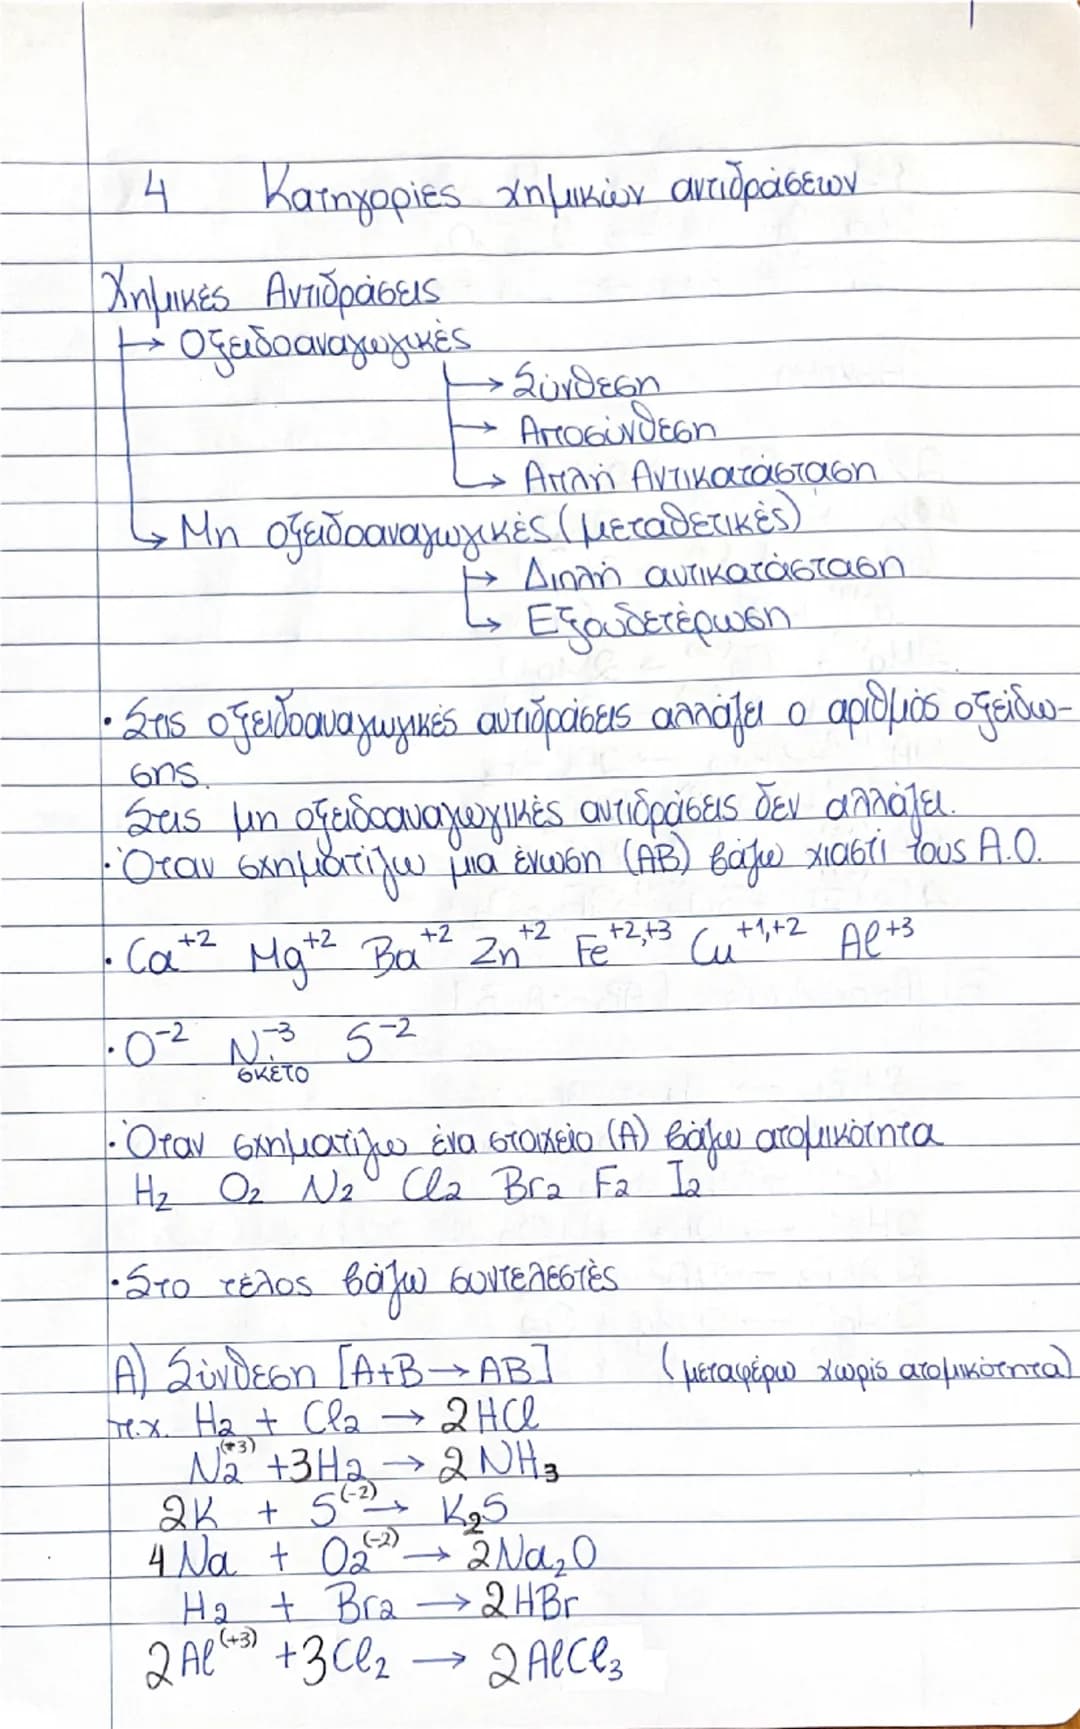 4 Κατηγορίες χημικών αντιδράσεων
Χημικές Αντιδράσεις
→ Οξειδοαναγωγικές
→ Σύνθεση
→ Αποσύνθεση
→ Απλή Αντικατάσταση
→ Μη οξειδοαναγωγικές (μεταθετικές)
→ Διπλή αντικατάσταση
→ Εξουδετέρωση
• Στις οξειδοαναγωγικές αντιδράσεις αλλάζει ο αριθμός οξείδω-
σης.
Στις μη οξειδοαναγωγικές αντιδράσεις δεν αλλάζει.
• Όταν σχηματίζω μια ένωση (ΑΒ) βάζω χιαστί τους Α.Ο.
• Ca⁺² Mg⁺² Ba⁺² Zn⁺² Fe⁺²,⁺³ Cu⁺¹,⁺² Al⁺³
• O⁻² N⁻³ S⁻²
σκέτο
• Όταν σχηματίζω ένα στοιχείο (Α) βάζω ατομικότητα
H₂ O₂ N₂ Cl₂ Br₂ F₂ I₂
• Στο τέλος βάζω συντελεστές
Α) Σύνθεση [A+B → AB] (μεταφέρω χωρίς ατομικότητα)
π.χ. H₂ + Cl₂ → 2HCl
N₂⁽⁺³⁾ +3H₂ → 2NH₃
2K + S⁽⁻²⁾ → K₂S
4Na + O₂⁽⁻²⁾ → 2Na₂O
H₂ + Br₂ → 2HBr
2Al⁽⁺³⁾ +3Cl₂ → 2AlCl₃